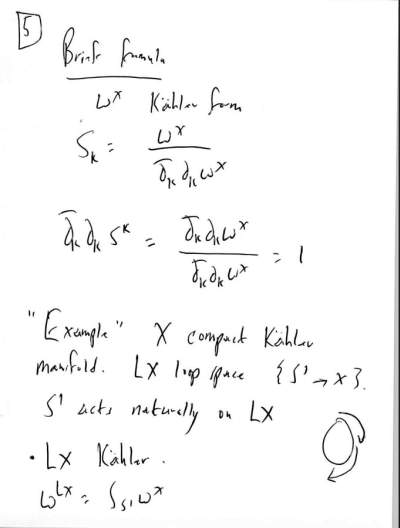 5
Brief formula
ω^X Kähler form
S_K = ω^X / ∂̄_K ∂_K ω^X
∂̄_K ∂_K S^K = ∂̄_K ∂_K ω^X / ∂̄_K ∂_K ω^X = 1
"Example" X compact Kähler
manifold. LX loop space {S¹ → X}.
S¹ acts naturally on LX
• LX Kähler.
ω^{LX} = ∫_{S¹} ω^X